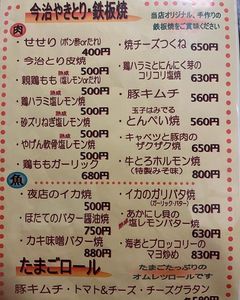 今治やきとり・鉄板焼
当店オリジナル、手作りの
鉄板焼をご賞味ください
肉
せせり(ポン酢orたれ)
400円
今治とり皮焼
500円
親鶏もも 熟成塩レモン焼
500円
鶏ハラミ塩レモン焼
580円
砂ズリねぎ塩レモン焼
500円
やげん軟骨塩レモン焼
500円
鶏ももガーリック
680円
焼チーズつくね 650円
鶏ハラミとにんにく芽の
コリコリ塩焼 630円
豚キムチ 560円
玉子はみでる
とんぺい焼 560円
キャベツと豚肉の
ザクザク焼 650円
牛とろホルモン焼
(特製みそ味) 800円
魚
・夜店のイカ焼
500円
・ほたてのバター醤油焼
750円
・カキ味噌バター焼
880円
・イカのガリバタ焼
(ガーリック・バター) 630円
・あかにし貝の
熟成塩レモンバター焼 630円
・海老とブロッコリーの
マヨ炒め 830円
たまごロール
たまごたっぷりの
オムレツロールです
豚キムチ・トマト&チーズ・チーズグラタン